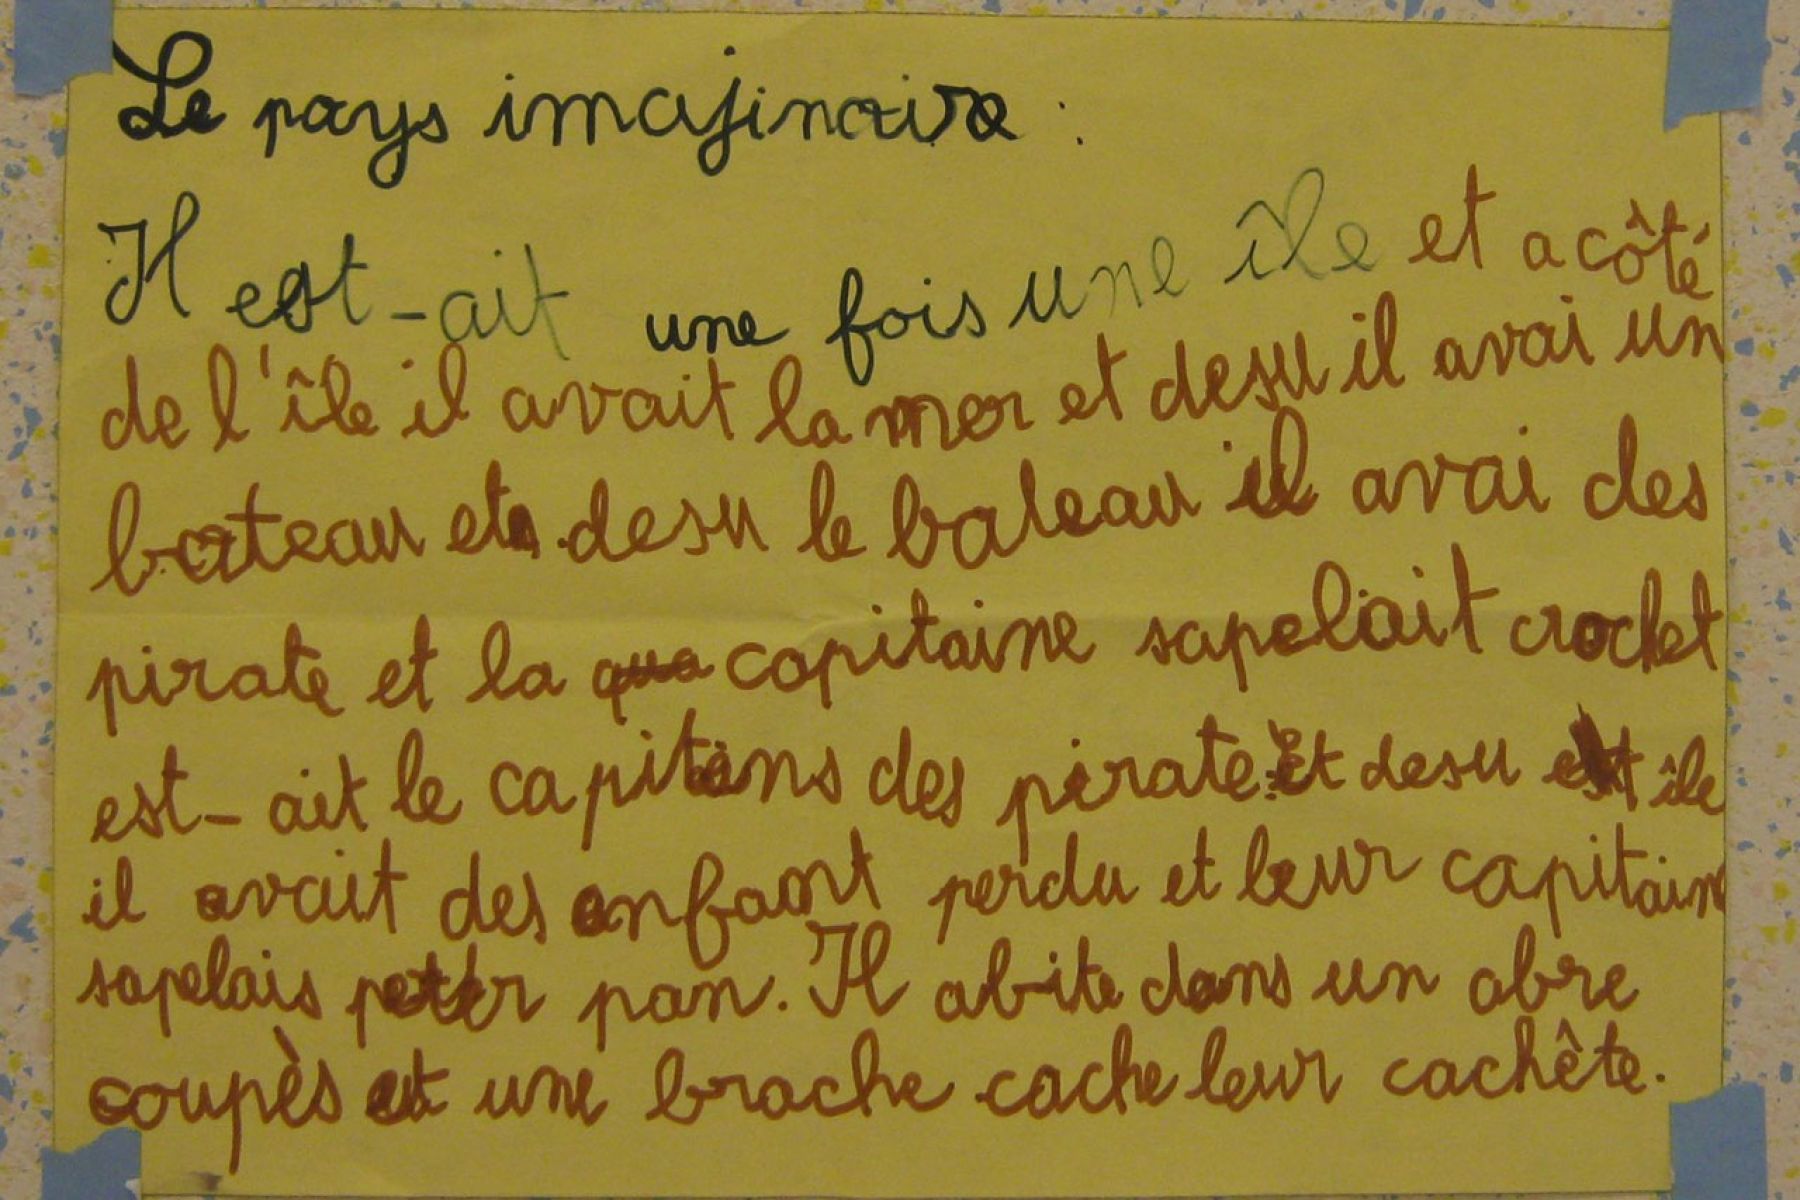 Le pays imajinaire :
Il est-ait une fois une île et a côté
de l'île il avait la mer et desu il avai un
bateau et desu le bateau il avai des
pirate et la capitaine sapelait crochet
est-ait le capitains des pirate. Et desu est île
il avait des enfant perdu et leur capitain
sapelais peter pan. Il abite dans un abre
coupès et une brache cache leur cachête.